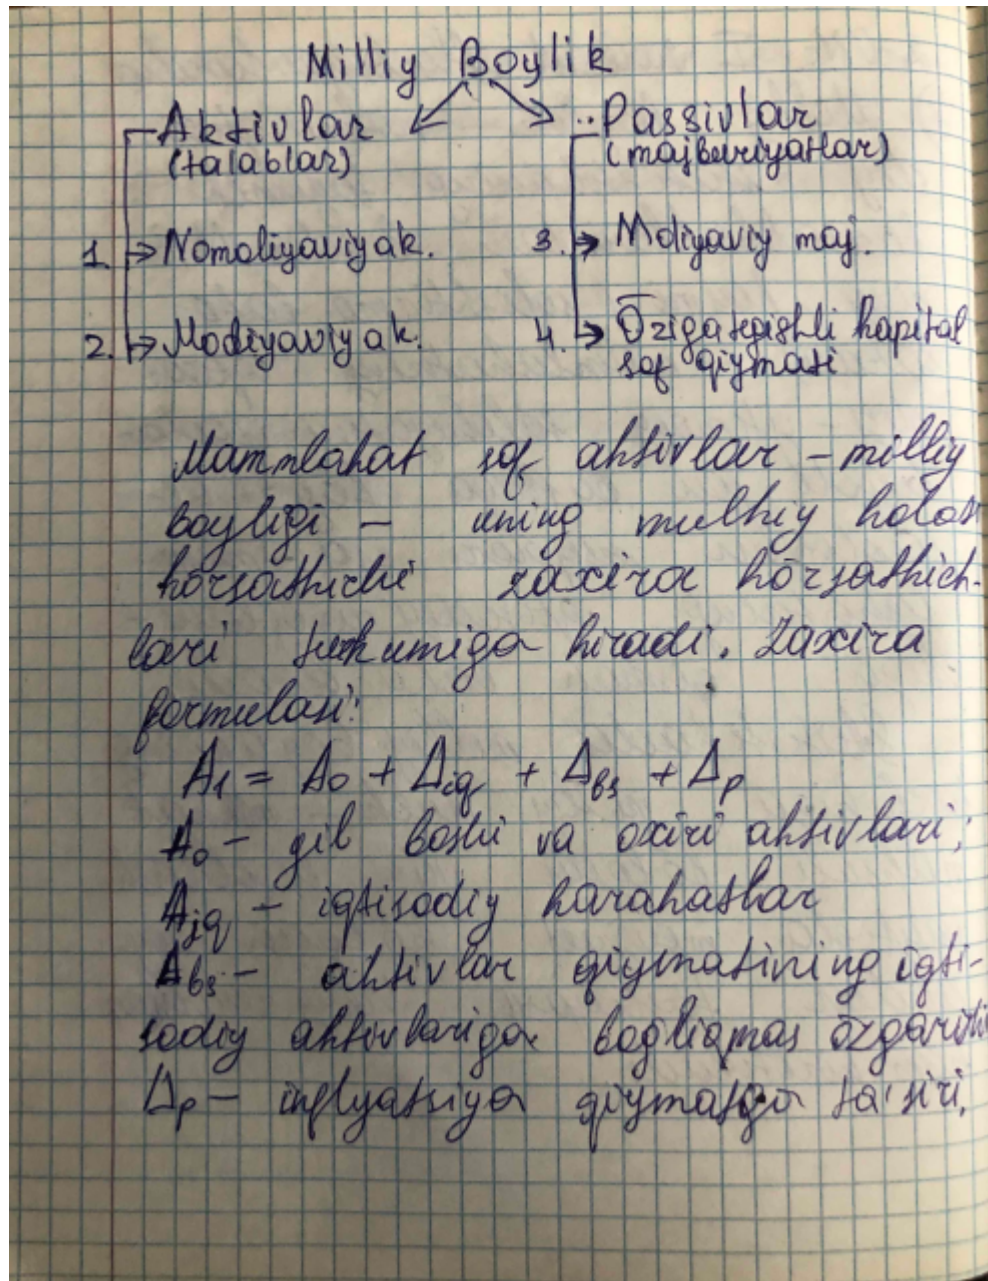 Milliy Boylik
Aktivlar
(talablar)
1. → Nomoliyaviy ak.
2. → Moliyaviy ak.
Passivlar
(majburiyatlar)
3. → Moliyaviy maj.
4. → Ōziga tegishli kapital
sof qiymati
Mammlakat sof aktivlar – milliy
boyligi – uning mulkiy holati
kōrsatkichi zaxira kōrsatkich-
lari turkumiga kiradi. Zaxira
formulasi:
A₁ = A₀ + Δiq + Δbs + Δp
A₀ – yil boshi va oxiri aktivlari;
Δiq – iqtisodiy harakatlar
Δbs – aktivlar qiymatining iqti-
sodiy aktivlariga bogliqmas ōzgarishi
Δp – inflyatsiya qiymatga ta'siri.